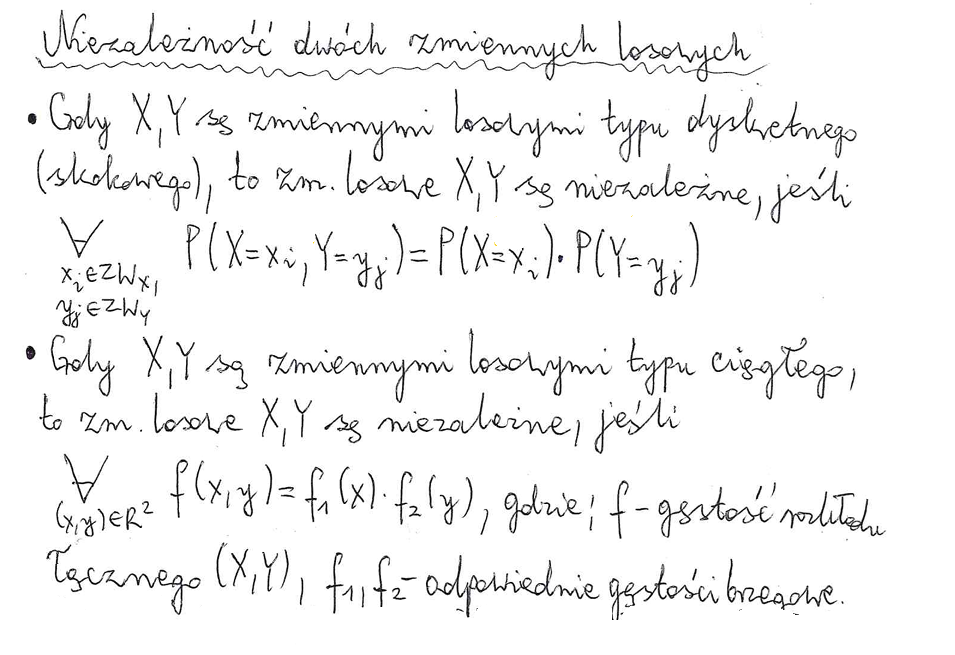 Niezależność dwóch zmiennych losowych
• Gdy X,Y są zmiennymi losowymi typu dyskretnego
(skokowego), to zm. losowe X,Y są niezależne, jeśli
∀ P(X=xi, Y=yj)=P(X=xi)·P(Y=yj)
xi∈ZWX,
yj∈ZWY
• Gdy X,Y są zmiennymi losowymi typu ciągłego,
to zm. losowe X,Y są niezależne, jeśli
∀ f(x,y)=f1(x)·f2(y), gdzie: f - gęstość rozkładu
(x,y)∈R²
łącznego (X,Y), f1,f2 - odpowiednie gęstości brzegowe.